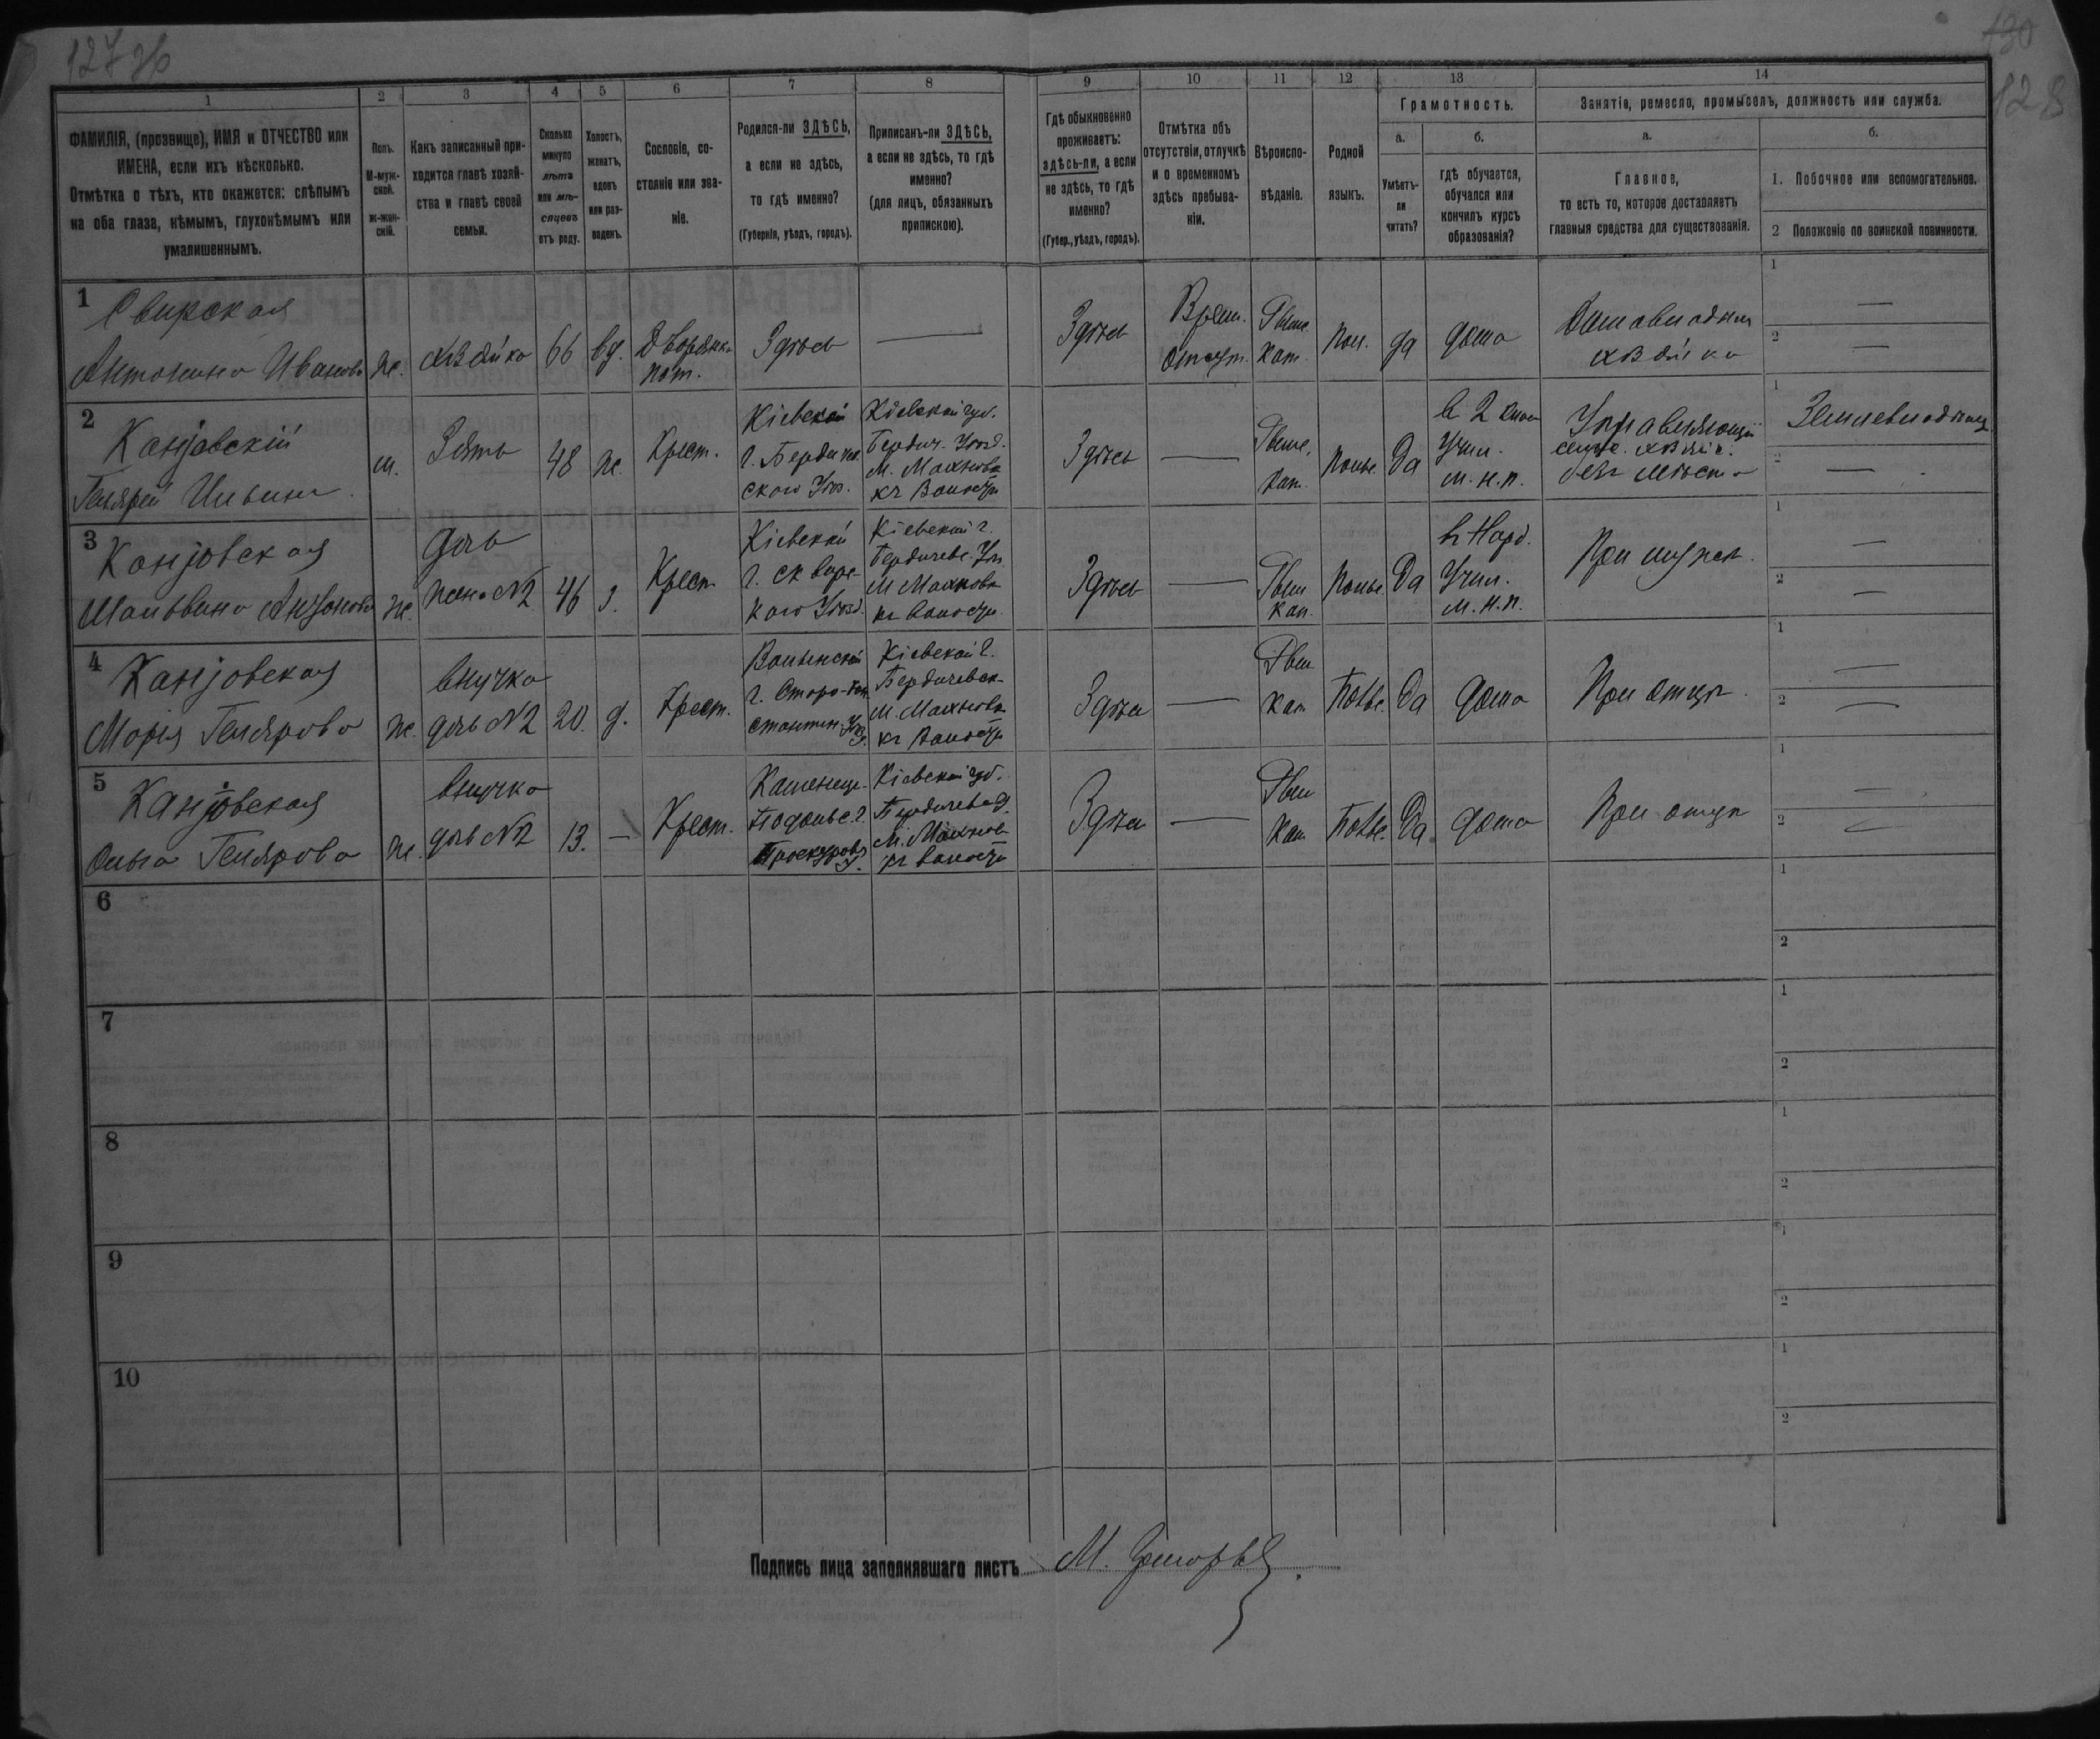 127 об
130
128
1 2 3 4 5 6 7 8 9 10 11 12 13 14
ФАМИЛІЯ, (прозвище), ИМЯ и ОТЧЕСТВО или
ИМЕНА, если ихъ нѣсколько.
Отмѣтка о тѣхъ, кто окажется: слѣпымъ
на оба глаза, нѣмымъ, глухонѣмымъ или
умалишеннымъ.
Полъ.
М-муж-
ской.
Ж-жен-
скій.
Какъ записанный при-
ходится главѣ хозяй-
ства и главѣ своей
семьи.
Сколько
минуло
лѣтъ
или мѣ-
сяцевъ
отъ роду.
Холостъ,
женатъ,
вдовъ
или раз-
веденъ.
Сословіе, со-
стояніе или зва-
ніе.
Родился-ли ЗДѢСЬ,
а если не здѣсь,
то гдѣ именно?
(Губернія, уѣздъ, городъ).
Приписанъ-ли ЗДѢСЬ,
а если не здѣсь, то гдѣ
именно?
(для лицъ, обязанныхъ
припискою).
Гдѣ обыкновенно
проживаетъ:
здѣсь-ли, а если
не здѣсь, то гдѣ
именно?
(Губер., уѣздъ, городъ).
Отмѣтка объ
отсутствіи, отлучкѣ
и о временномъ
здѣсь пребыва-
ніи.
Вѣроиспо-
вѣданіе.
Родной
языкъ.
Грамотность.
а.
Умѣетъ-
ли
читать?
б.
гдѣ обучается,
обучался или
кончилъ курсъ
образованія?
Занятіе, ремесло, промыселъ, должность или служба.
а.
Главное,
то есть то, которое доставляетъ
главныя средства для существованія.
б.
1. Побочное или вспомогательное.
2 Положеніе по воинской повинности.
1
Свирская
Антонина Иванова
ж.
хозяйка
66
вд.
Дворянка
пот.
Здѣсь
—
Здѣсь
Врем.
отсут.
Римс.
кат.
пол.
да
дома
хозяйка
1 —
2 —
2
м.
Зять
48
ж.
Крест.
Кіевской
г. Бердичев
скаго Уѣз.
Кіевской губ.
Бердич. Уѣзд.
М. Махновк
кг Волости
Здѣсь
Римс.
кат.
польс.
Да
Учил.
м. н. п.
Управляющій
сельс. хозяйс.
безъ мѣста
1 Землевладѣлец
2 —
3
дочь
жена №2
ж.
46
з.
Крест
Кіевской
г. Сквирс-
каго Уѣзд.
Кіевской г.
Бердичевс. Уѣз
М Махновк
кг волости
Здѣсь
—
Рим
кат.
польс.
Да
в Нард.
Учил.
м. н. п.
При мужѣ.
1 —
2 —
4
внучка
дочь №2
ж.
20.
д.
Крест.
Волынской
г. Старо-Кон
стантин. Уѣз.
Кіевской г.
Бердичевск.
М. Махновк
кг Волости
Здѣсь
—
Рим
кат
Польс.
Да
дома
При отцѣ.
1 —
2 —
5
внучка
дочь №2
ж.
13.
—
Крест.
Каменец-
Подольс. г.
Проскуров
У.
Кіевской губ.
Бердичев У.
М. Махновк
кг волости
Здѣсь
—
Рим
кат
Польс.
Да
дома
При отцѣ
1 —
2 —
6
1
2
7
1
2
8
1
2
9
1
2
10
1
2
Подпись лица заполнявшаго листъ